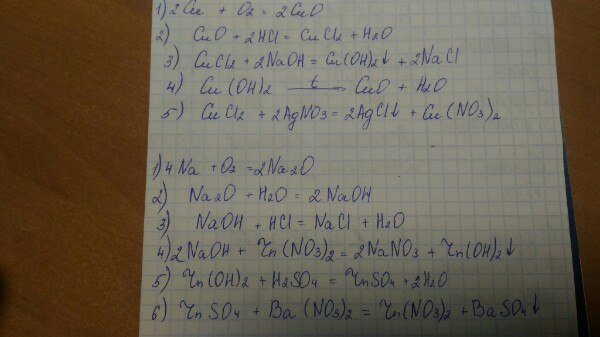 1) 2Cu + O2 = 2CuO
2) CuO + 2HCl = CuCl2 + H2O
3) CuCl2 + 2NaOH = Cu(OH)2↓ + 2NaCl
4) Cu(OH)2 t→ CuO + H2O
5) CuCl2 + 2AgNO3 = 2AgCl↓ + Cu(NO3)2
1) 4Na + O2 = 2Na2O
2) Na2O + H2O = 2NaOH
3) NaOH + HCl = NaCl + H2O
4) 2NaOH + Zn(NO3)2 = 2NaNO3 + Zn(OH)2↓
5) Zn(OH)2 + H2SO4 = ZnSO4 + 2H2O
6) ZnSO4 + Ba(NO3)2 = Zn(NO3)2 + BaSO4↓